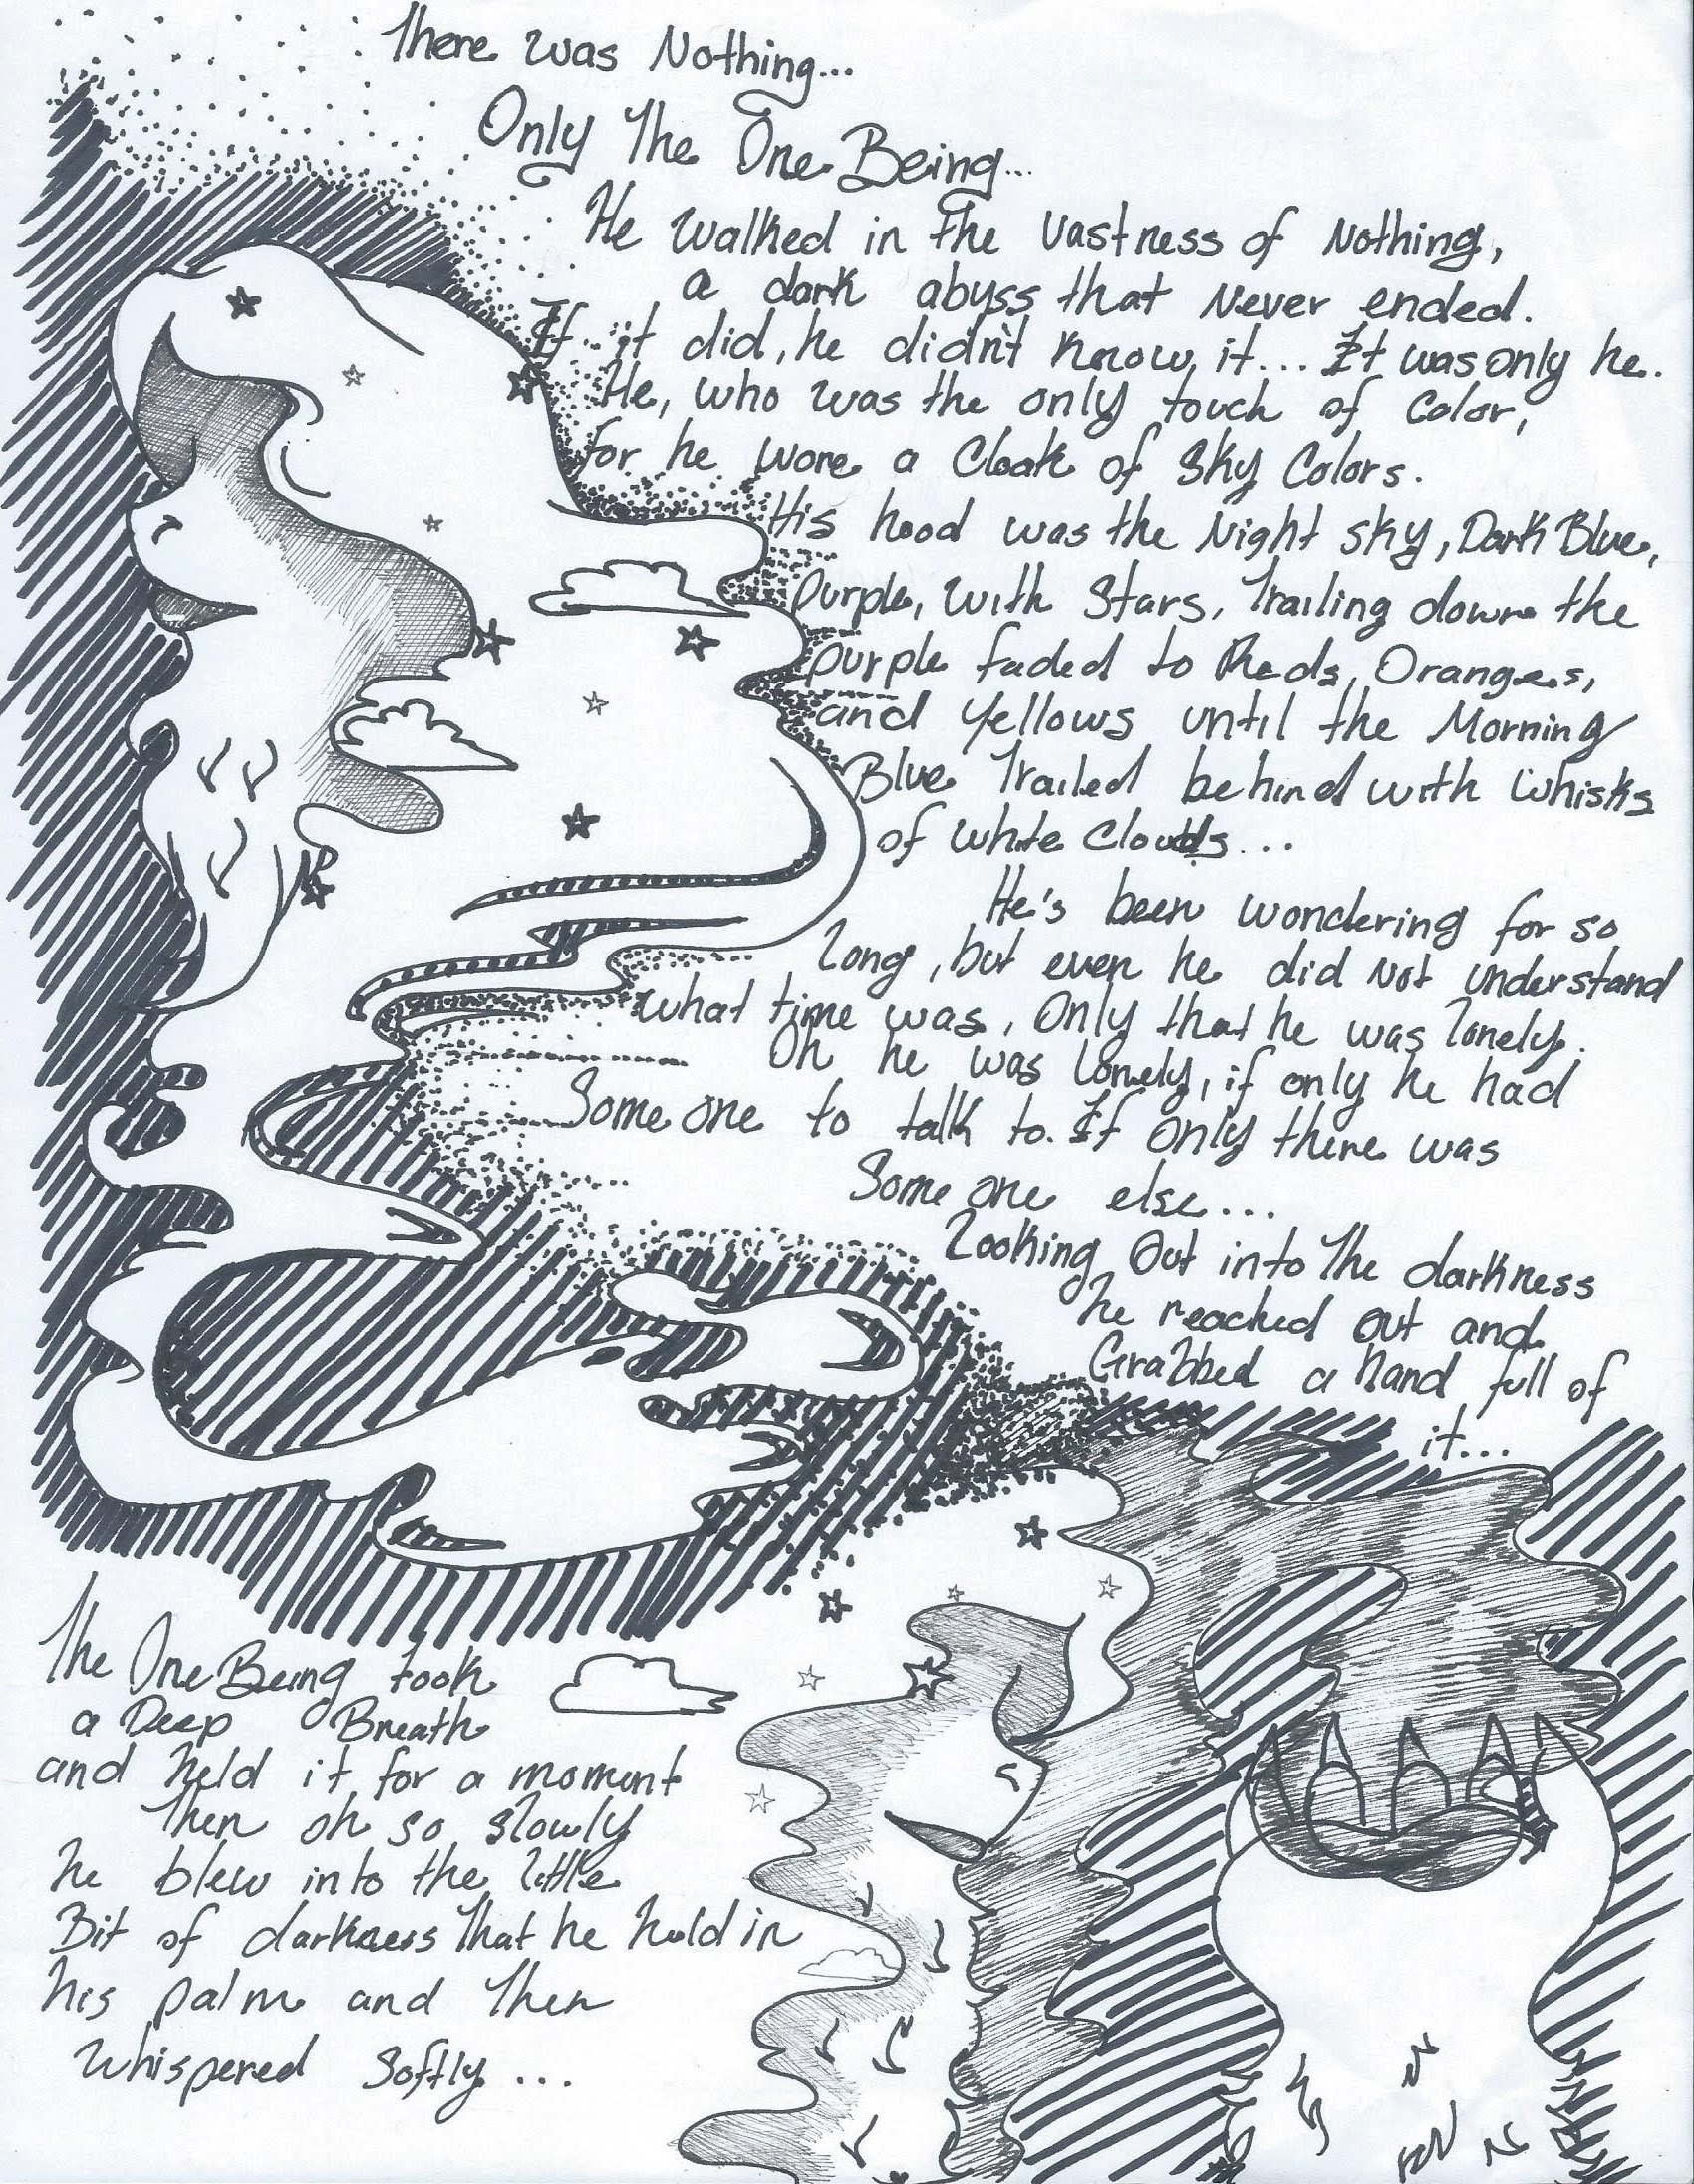 There was Nothing...
Only The One Being...
He walked in the vastness of Nothing,
a dark abyss that Never ended.
If it did, he didn't know it... It was only he.
He, who was the only touch of Color,
for he wore a Cloak of Sky Colors.
His hood was the Night sky, Dark Blue,
Purple, with Stars, Trailing down the
purple faded to Reds, Oranges,
and yellows until the Morning
Blue Trailed behind with whisks
of white Clouds...
He's been wondering for so
Long, but even he did Not understand
what time was, Only that he was lonely.
Oh he was lonely, if only he had
Some one to talk to. If only there was
Some one else...
Looking Out into The darkness
he reached out and
Grabbed a hand full of
it...
The One Being took
a Deep Breath
and held it for a moment
Then oh so slowly
he blew into the little
Bit of darkness That he held in
his palm and Then
Whispered Softly...